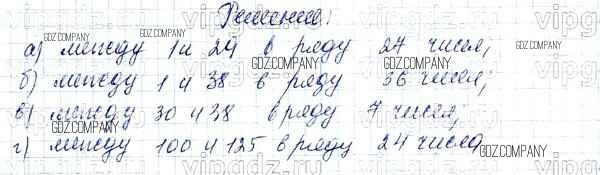 Решение:
а) между 1 и 29 в ряду 27 чисел;
б) между 1 и 38 в ряду 36 чисел;
в) между 30 и 38 в ряду 7 чисел;
г) между 100 и 125 в ряду 24 числа,
GDZ.COMPANY
GDZ.COMPANY
GDZ.COMPANY
GDZ.COMPANY
GDZ.COMPANY
GDZ.COMPANY
vipgdz.ru